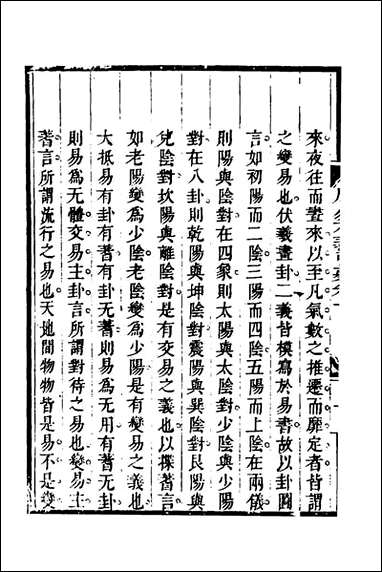 來夜往而晝來以至凡氣數之推遷而靡定者皆謂
之變易也伏羲畫卦二義皆模寫於易書故以卦圖
言如初陽而二陰三陽而四陰五陽而上陰在兩儀
則陽與陰對在四象則太陽與太陰對少陰與少陽
對在八卦則乾陽與坤陰對震陽與巽陰對艮陽與
兌陰對坎陽與離陰對是有交易之義也以揲蓍言
如老陽變爲少陰老陰變爲少陽是有變易之義也
大抵易有卦有蓍有卦無蓍則易爲无用有蓍无卦
則易爲无體交易主卦言所謂對待之易也變易主
蓍言所謂流行之易也天地間物物皆是易不是變